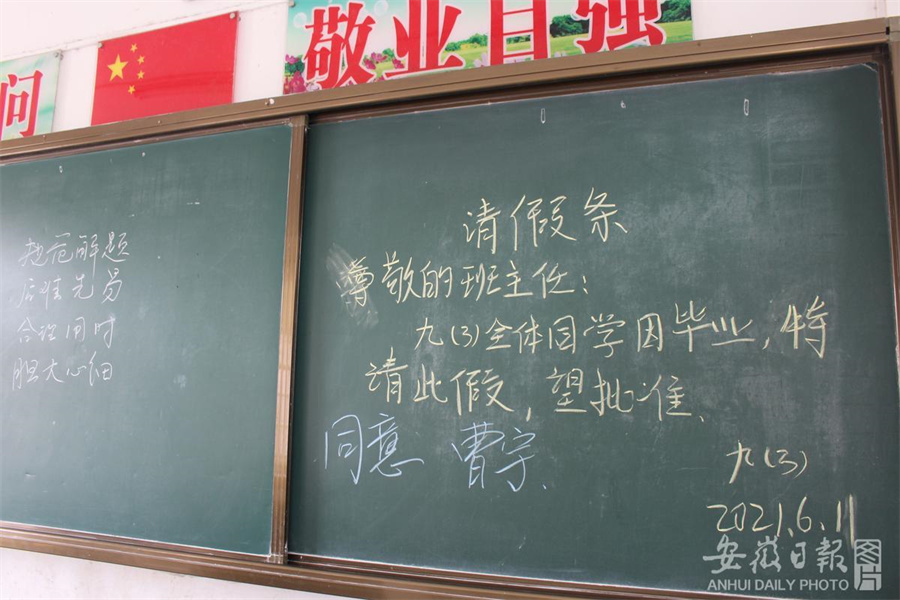 问
敬业自强
规范解题
先难先易
合理用时
胆大心细
请假条
尊敬的班主任：
九(3)全体同学因毕业，特
请此假，望批准、
同意 曹宇、
九(3)
2021.6.11
安徽日報图片
ANHUI DAILY PHOTO